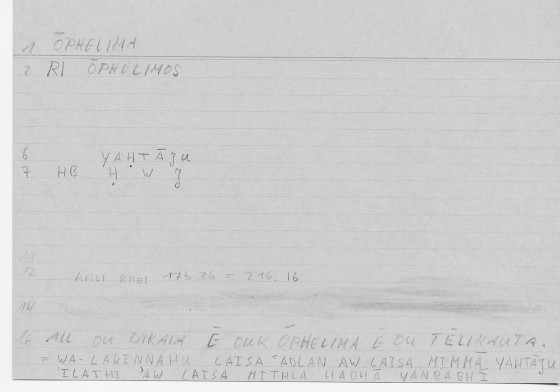 1 ŌPHELIMA
2 RI ŌPHELIMOS
6 YAḤTĀJU
7 HC Ḥ W J
12 Arist Rhet 175 26 = 216. 16
14
16 ALL OU DIKAIA Ē OUK ŌPHELIMA Ē OU TĒLIKAUTA.
= WA-LAKINNAHU LAISA 'ADLAN AW LAISA MIMMĀ YAḤTĀJU
'ILAIHI 'AW LAISA MITHLA HADHĀ